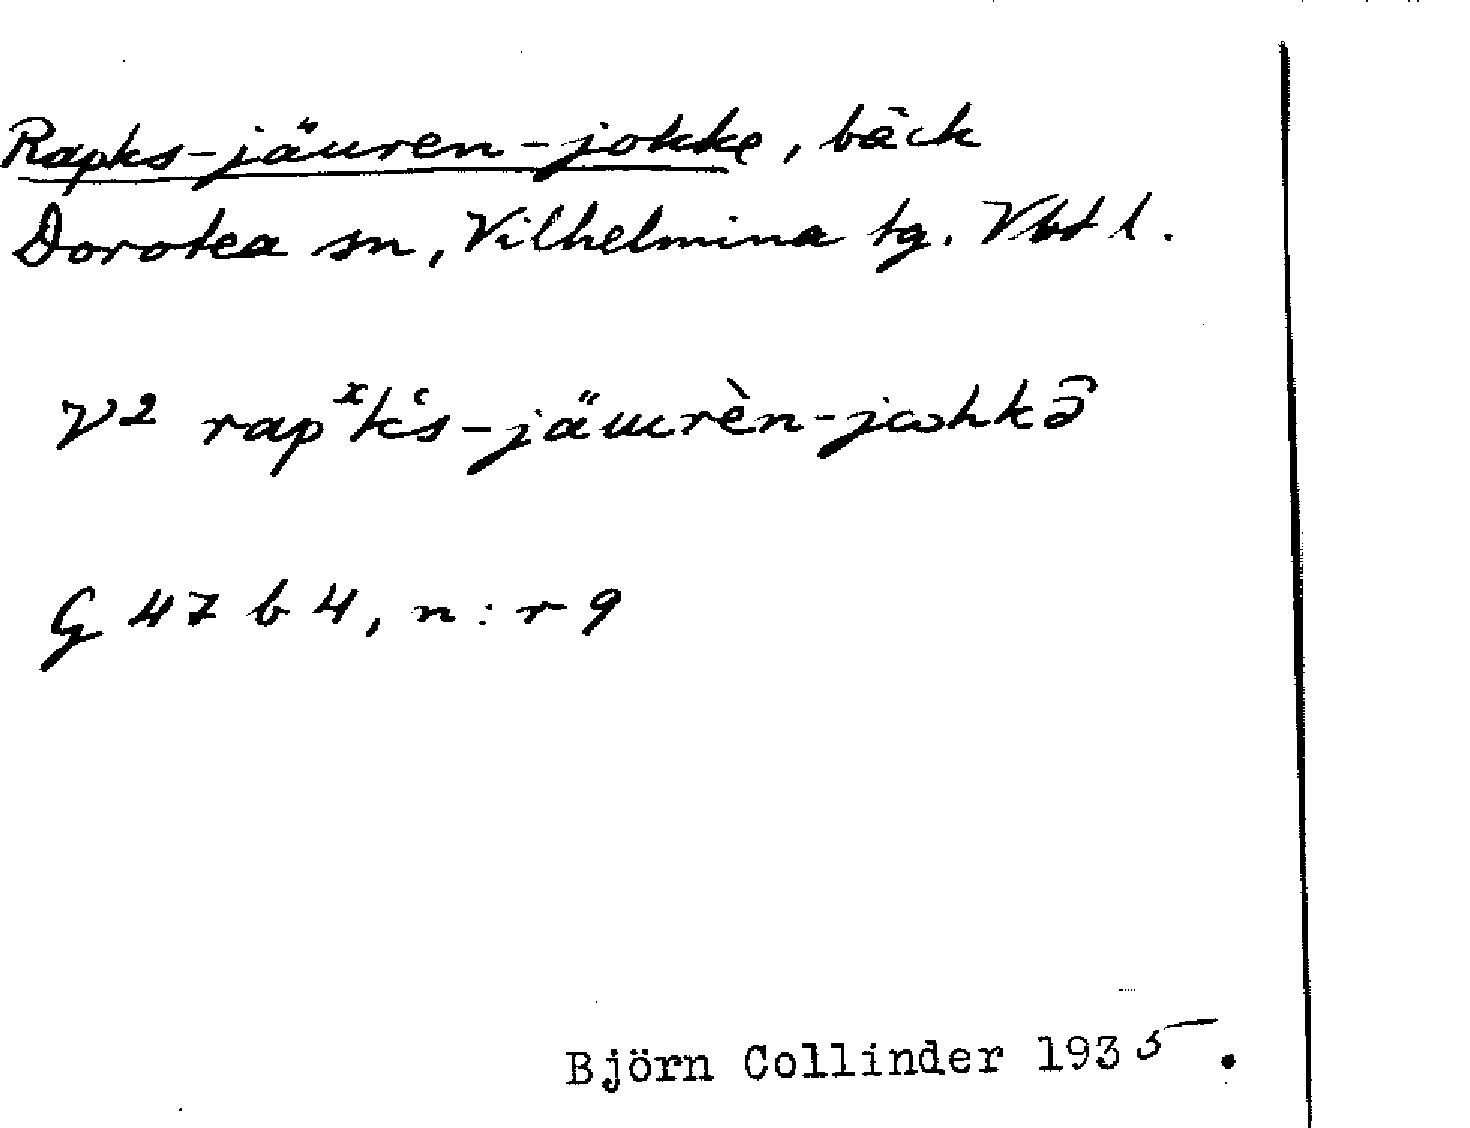 Rapks-jäuren-jokke, bäck
Dorotea sn, Vilhelmina tg. Vbtl.
V2 rapˣk‘s-jäɯrèn-jωhkə̑
G 47 b 4, n:r 9
Björn Collinder 1935.